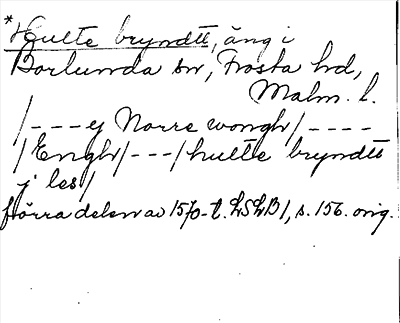 *Hulte bryndtt, äng i
Borlunda sn, Frosta hd,
Malm. l.
/---y Norre wongh/----
/Engh/---/hulte bryndtt
j les/
förra delen av 1570-t. LSLB1, s. 156. orig.